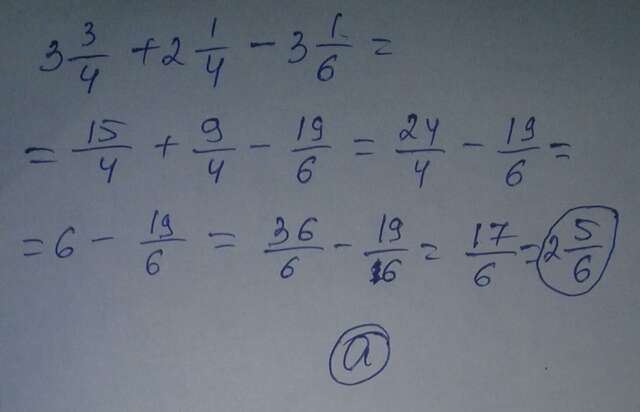 3 3/4 + 2 1/4 - 3 1/6 =
= 15/4 + 9/4 - 19/6 = 24/4 - 19/6 =
= 6 - 19/6 = 36/6 - 19/6 = 17/6 = 2 5/6
a